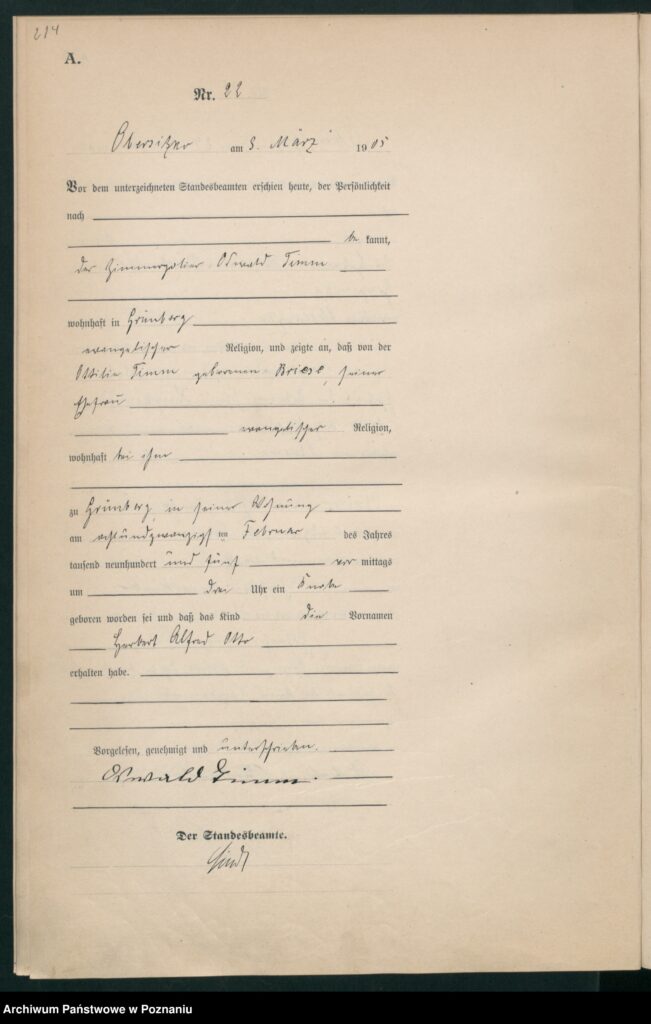 214
A.
Nr. 22
Obersitzko am 3. März 1905
Vor dem unterzeichneten Standesbeamten erschien heute, der Persönlichkeit
nach
be kannt,
der Zimmerpolier Oswald Timm
wohnhaft in Grünberg
evangelischer Religion, und zeigte an, daß von der
Ottilie Timm geborenen Briese, seiner
Ehefrau
evangelischer Religion,
wohnhaft bei ihm
zu Grünberg in seiner Wohnung
am achtundzwanzigsten Februar des Jahres
tausend neunhundert und fünf vor mittags
um drei Uhr ein Knabe
geboren worden sei und daß das Kind die Vornamen
Herbert Alfred Otto
erhalten habe.
Vorgelesen, genehmigt und unterschrieben.
Oswald Timm.
Der Standesbeamte.
Archiwum Państwowe w Poznaniu